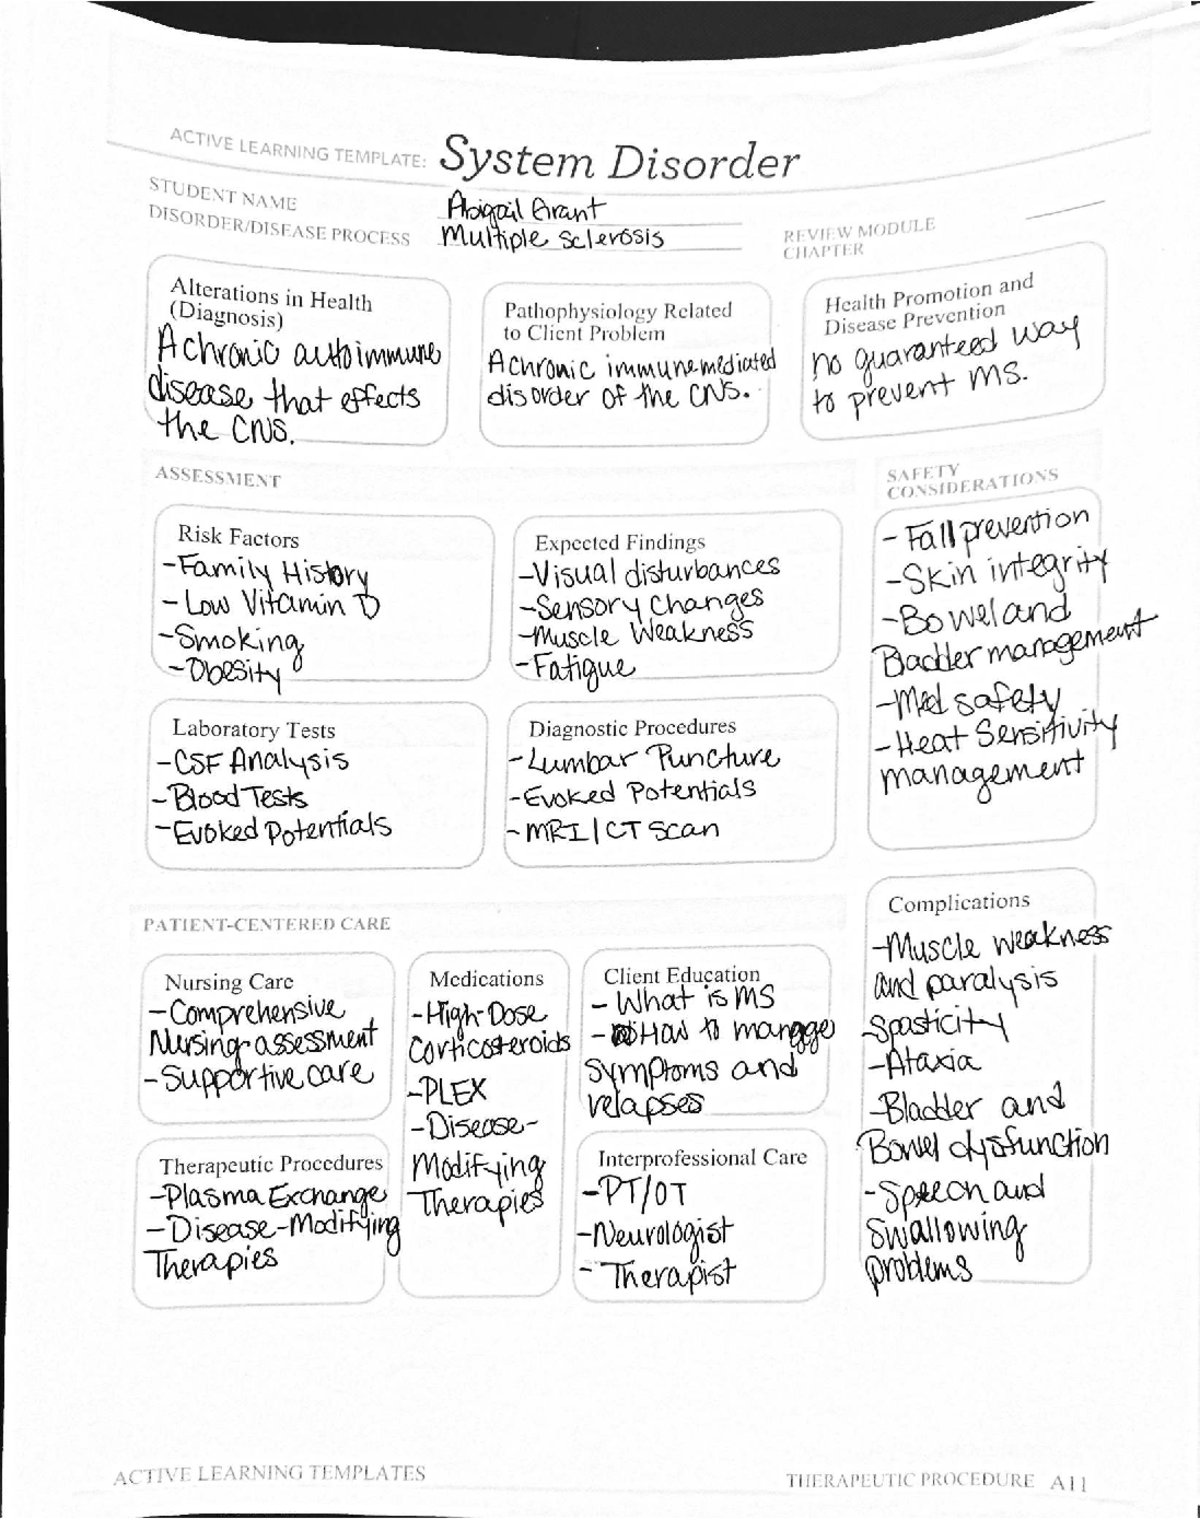 ACTIVE LEARNING TEMPLATE: System Disorder
STUDENT NAME Abigail Grant
DISORDER/DISEASE PROCESS Multiple Sclerosis
REVIEW MODULE
CHAPTER
Alterations in Health
(Diagnosis)
A chronic autoimmune
disease that effects
the CNS.
Pathophysiology Related
to Client Problem
A chronic immune mediated
disorder of the CNS.
Health Promotion and
Disease Prevention
no guaranteed way
to prevent MS.
ASSESSMENT
SAFETY
CONSIDERATIONS
Risk Factors
-Family History
-Low Vitamin D
-Smoking
-Obesity
Expected Findings
-Visual disturbances
-Sensory changes
-Muscle Weakness
-Fatigue
-Fall prevention
-Skin integrity
-Bowel and
Bladder management
-Med safety
-Heat Sensitivity
management
Laboratory Tests
-CSF Analysis
-Blood Tests
-Evoked Potentials
Diagnostic Procedures
-Lumbar Puncture
-Evoked Potentials
-MRI/CT Scan
PATIENT-CENTERED CARE
Nursing Care
-Comprehensive
Nursing assessment
-Supportive care
Medications
-High-Dose
Corticosteroids
-PLEX
-Disease-
Modifying
Therapies
Client Education
- What is MS
- How to manage
symptoms and
relapses
Complications
-Muscle weakness
and paralysis
spasticity
-Ataxia
-Bladder and
Bowel dysfunction
-Speech and
swallowing
problems
Therapeutic Procedures
-Plasma Exchange
-Disease-Modifying
Therapies
Interprofessional Care
-PT/OT
-Neurologist
- Therapist
ACTIVE LEARNING TEMPLATES
THERAPEUTIC PROCEDURE A11